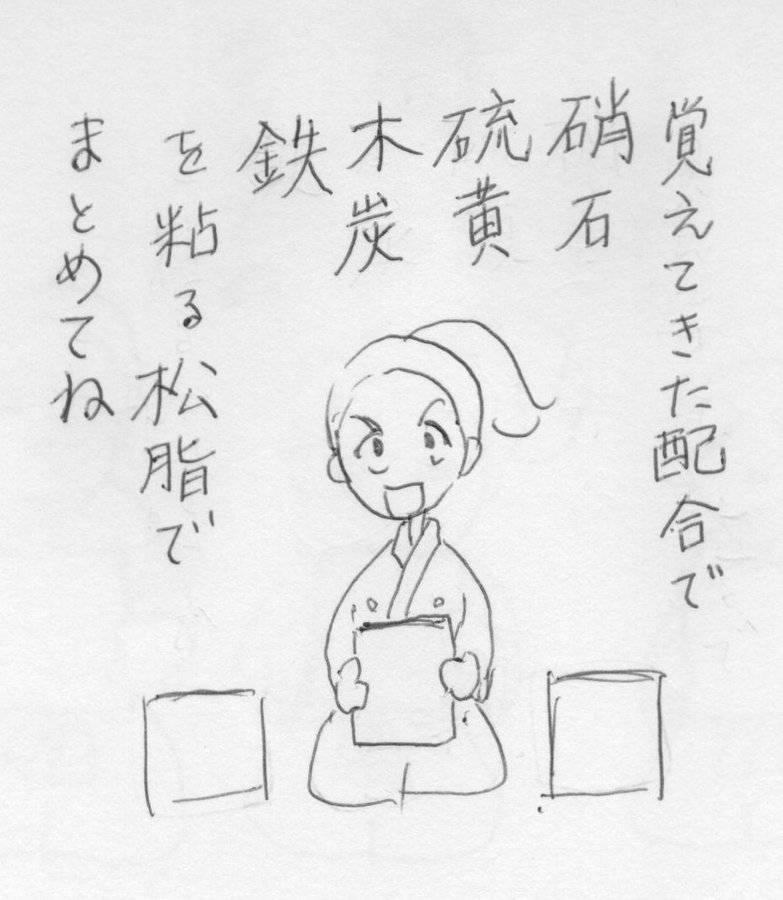 覚えてきた配合で
硝石
硫黄
木炭
鉄
を粘る松脂で
まとめてね